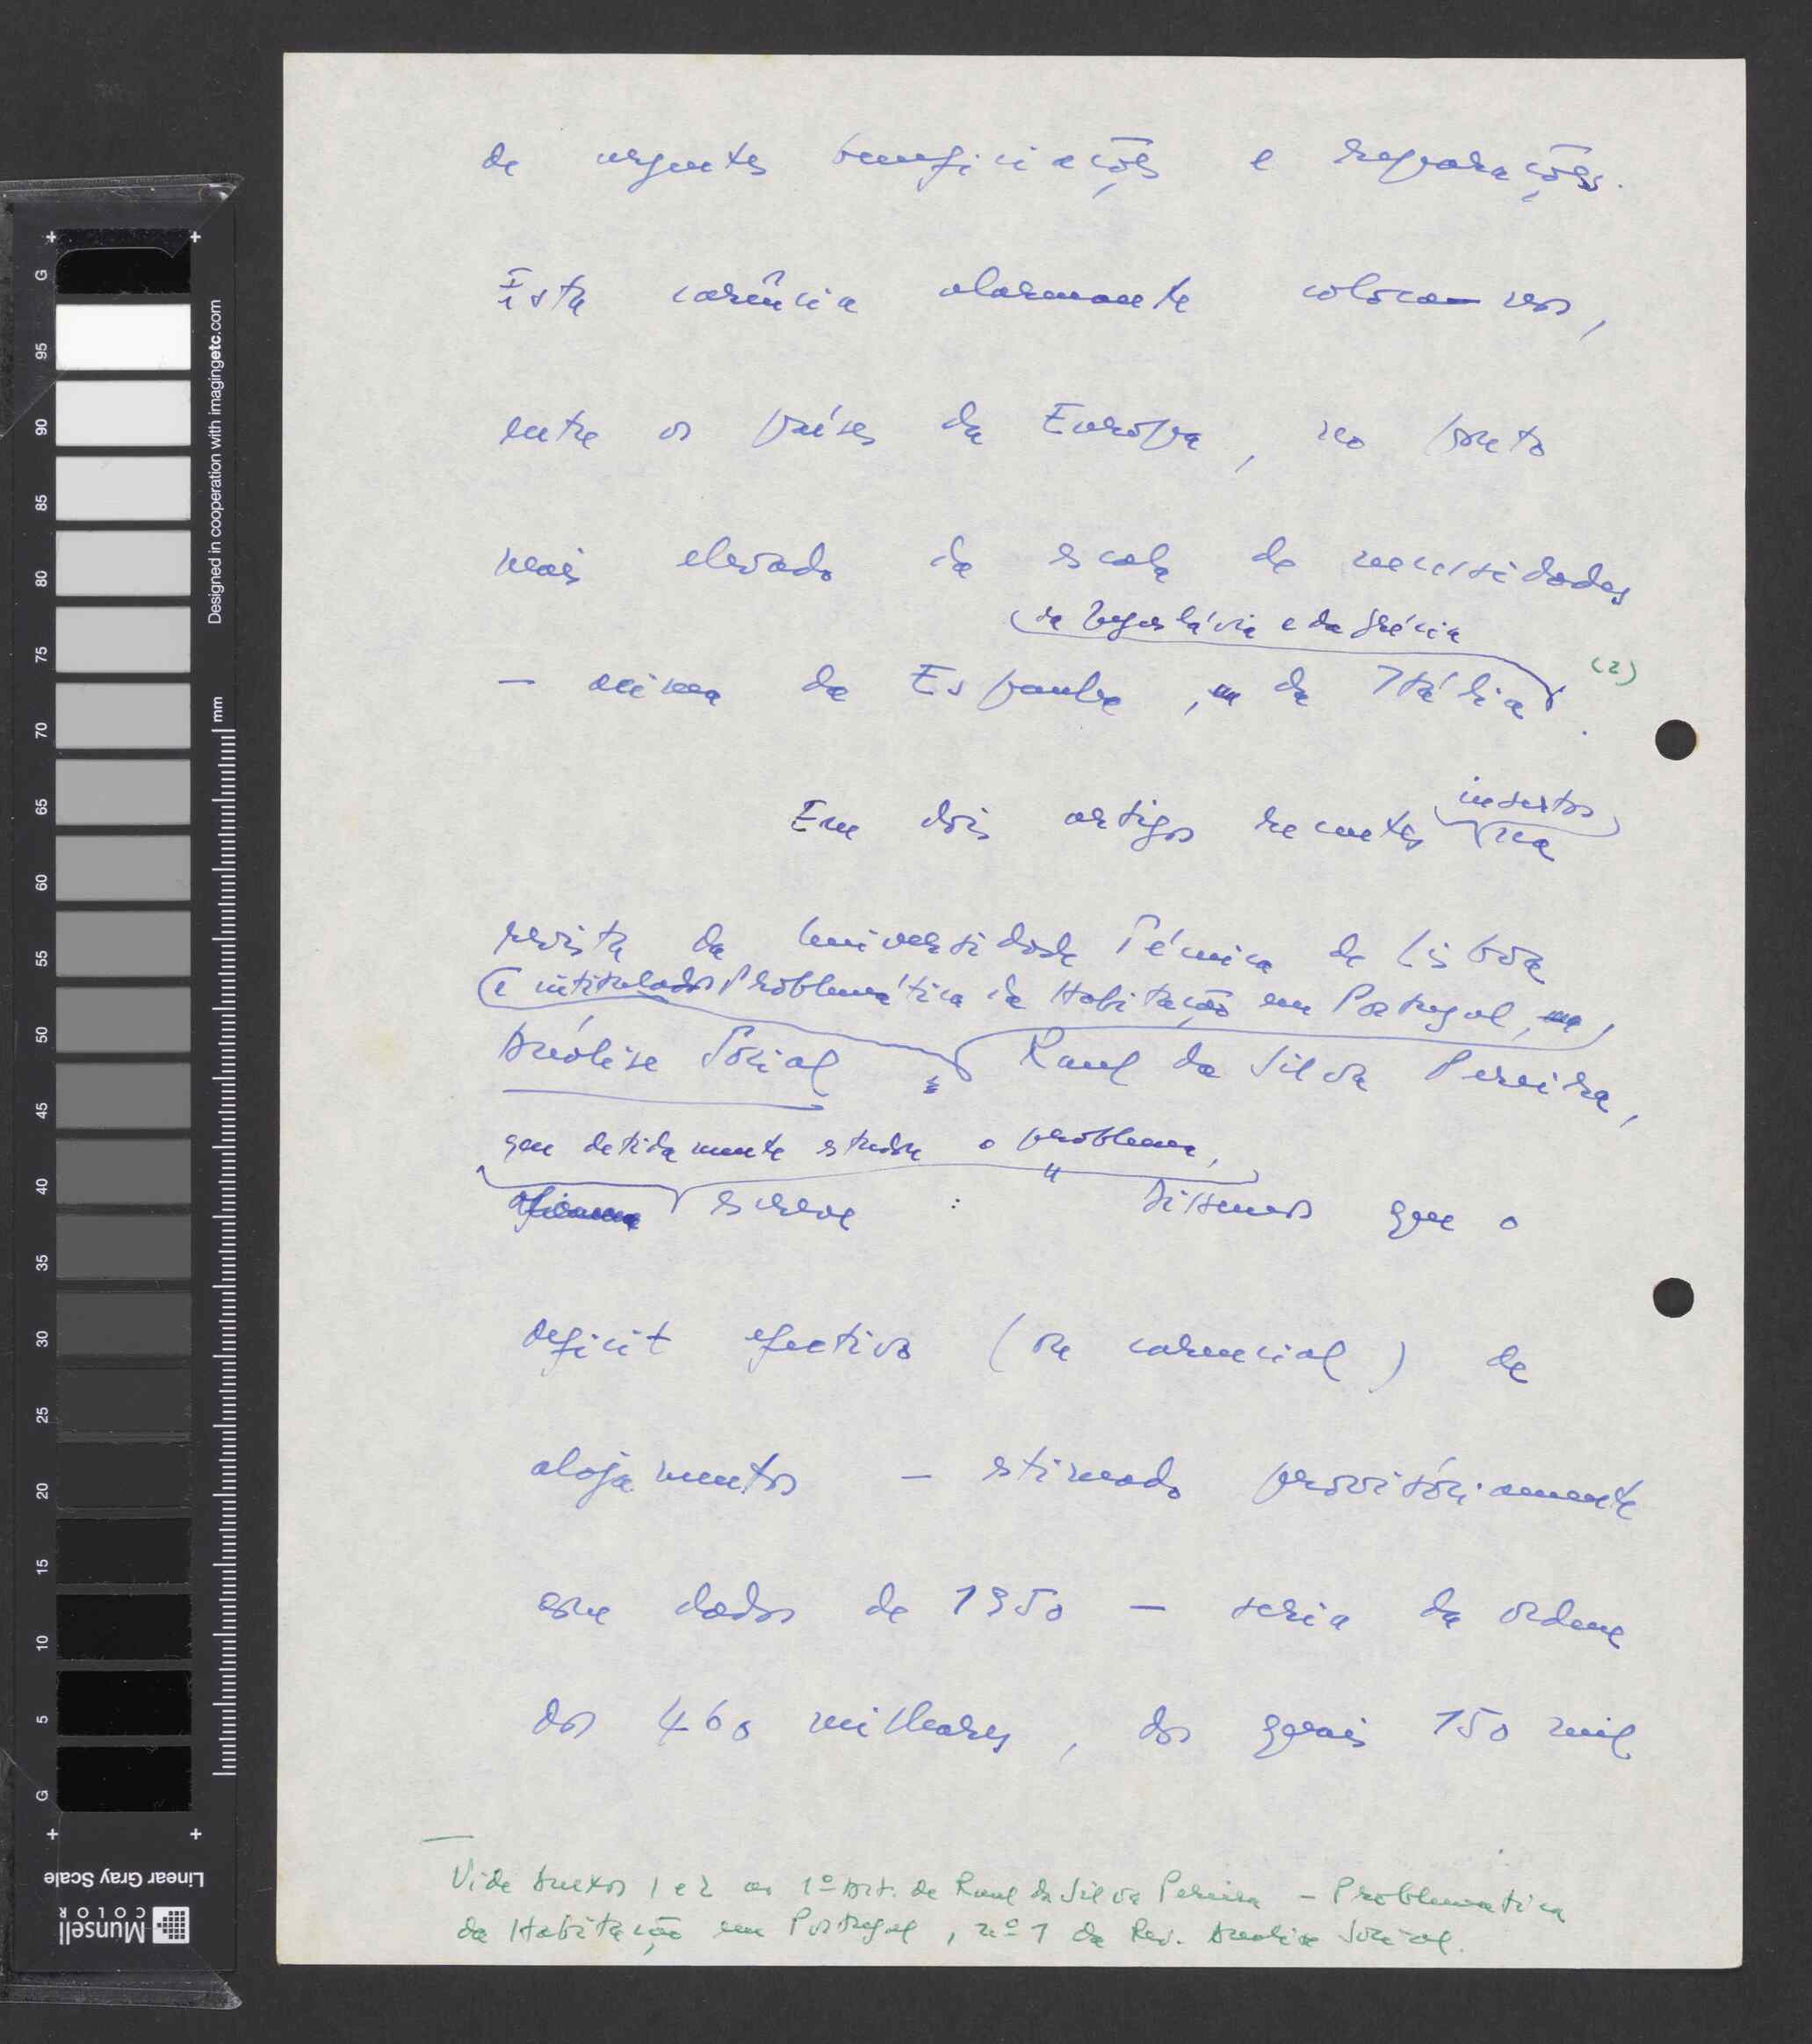 de urgentes beneficiações e reparações.
Esta carência alarmante coloca-nos,
entre os países da Europa, no ponto
mais elevado da escala de necessidades
da Jugoslávia e da Grécia
(2)
— acima da Espanha, da Itália.
insertos
Em dois artigos recentes na
revista da Universidade Técnica de Lisboa
e intitulados Problemática da Habitação em Portugal,
Análise Social Raul da Silva Pereira,
que detidamente estudou o problema,
afirma escreve : " Dissemos que o
deficit efectivo (ou carencial) de
alojamentos — estimado provisóriamente
com dados de 1950 — seria da ordem
dos 460 milhares, dos quais 150 mil
Vide Anexos 1 e 2 ao 1º Art. de Raul da Silva Pereira — Problematica
da Habitação em Portugal, nº 1 da Rev. Analise Social.
G
95
90
85
80
75
70
65
60
55
50
45
40
35
30
25
20
15
10
5
G
mm
Designed in cooperation with imagingetc.com
Linear Gray Scale
Munsell
COLOR